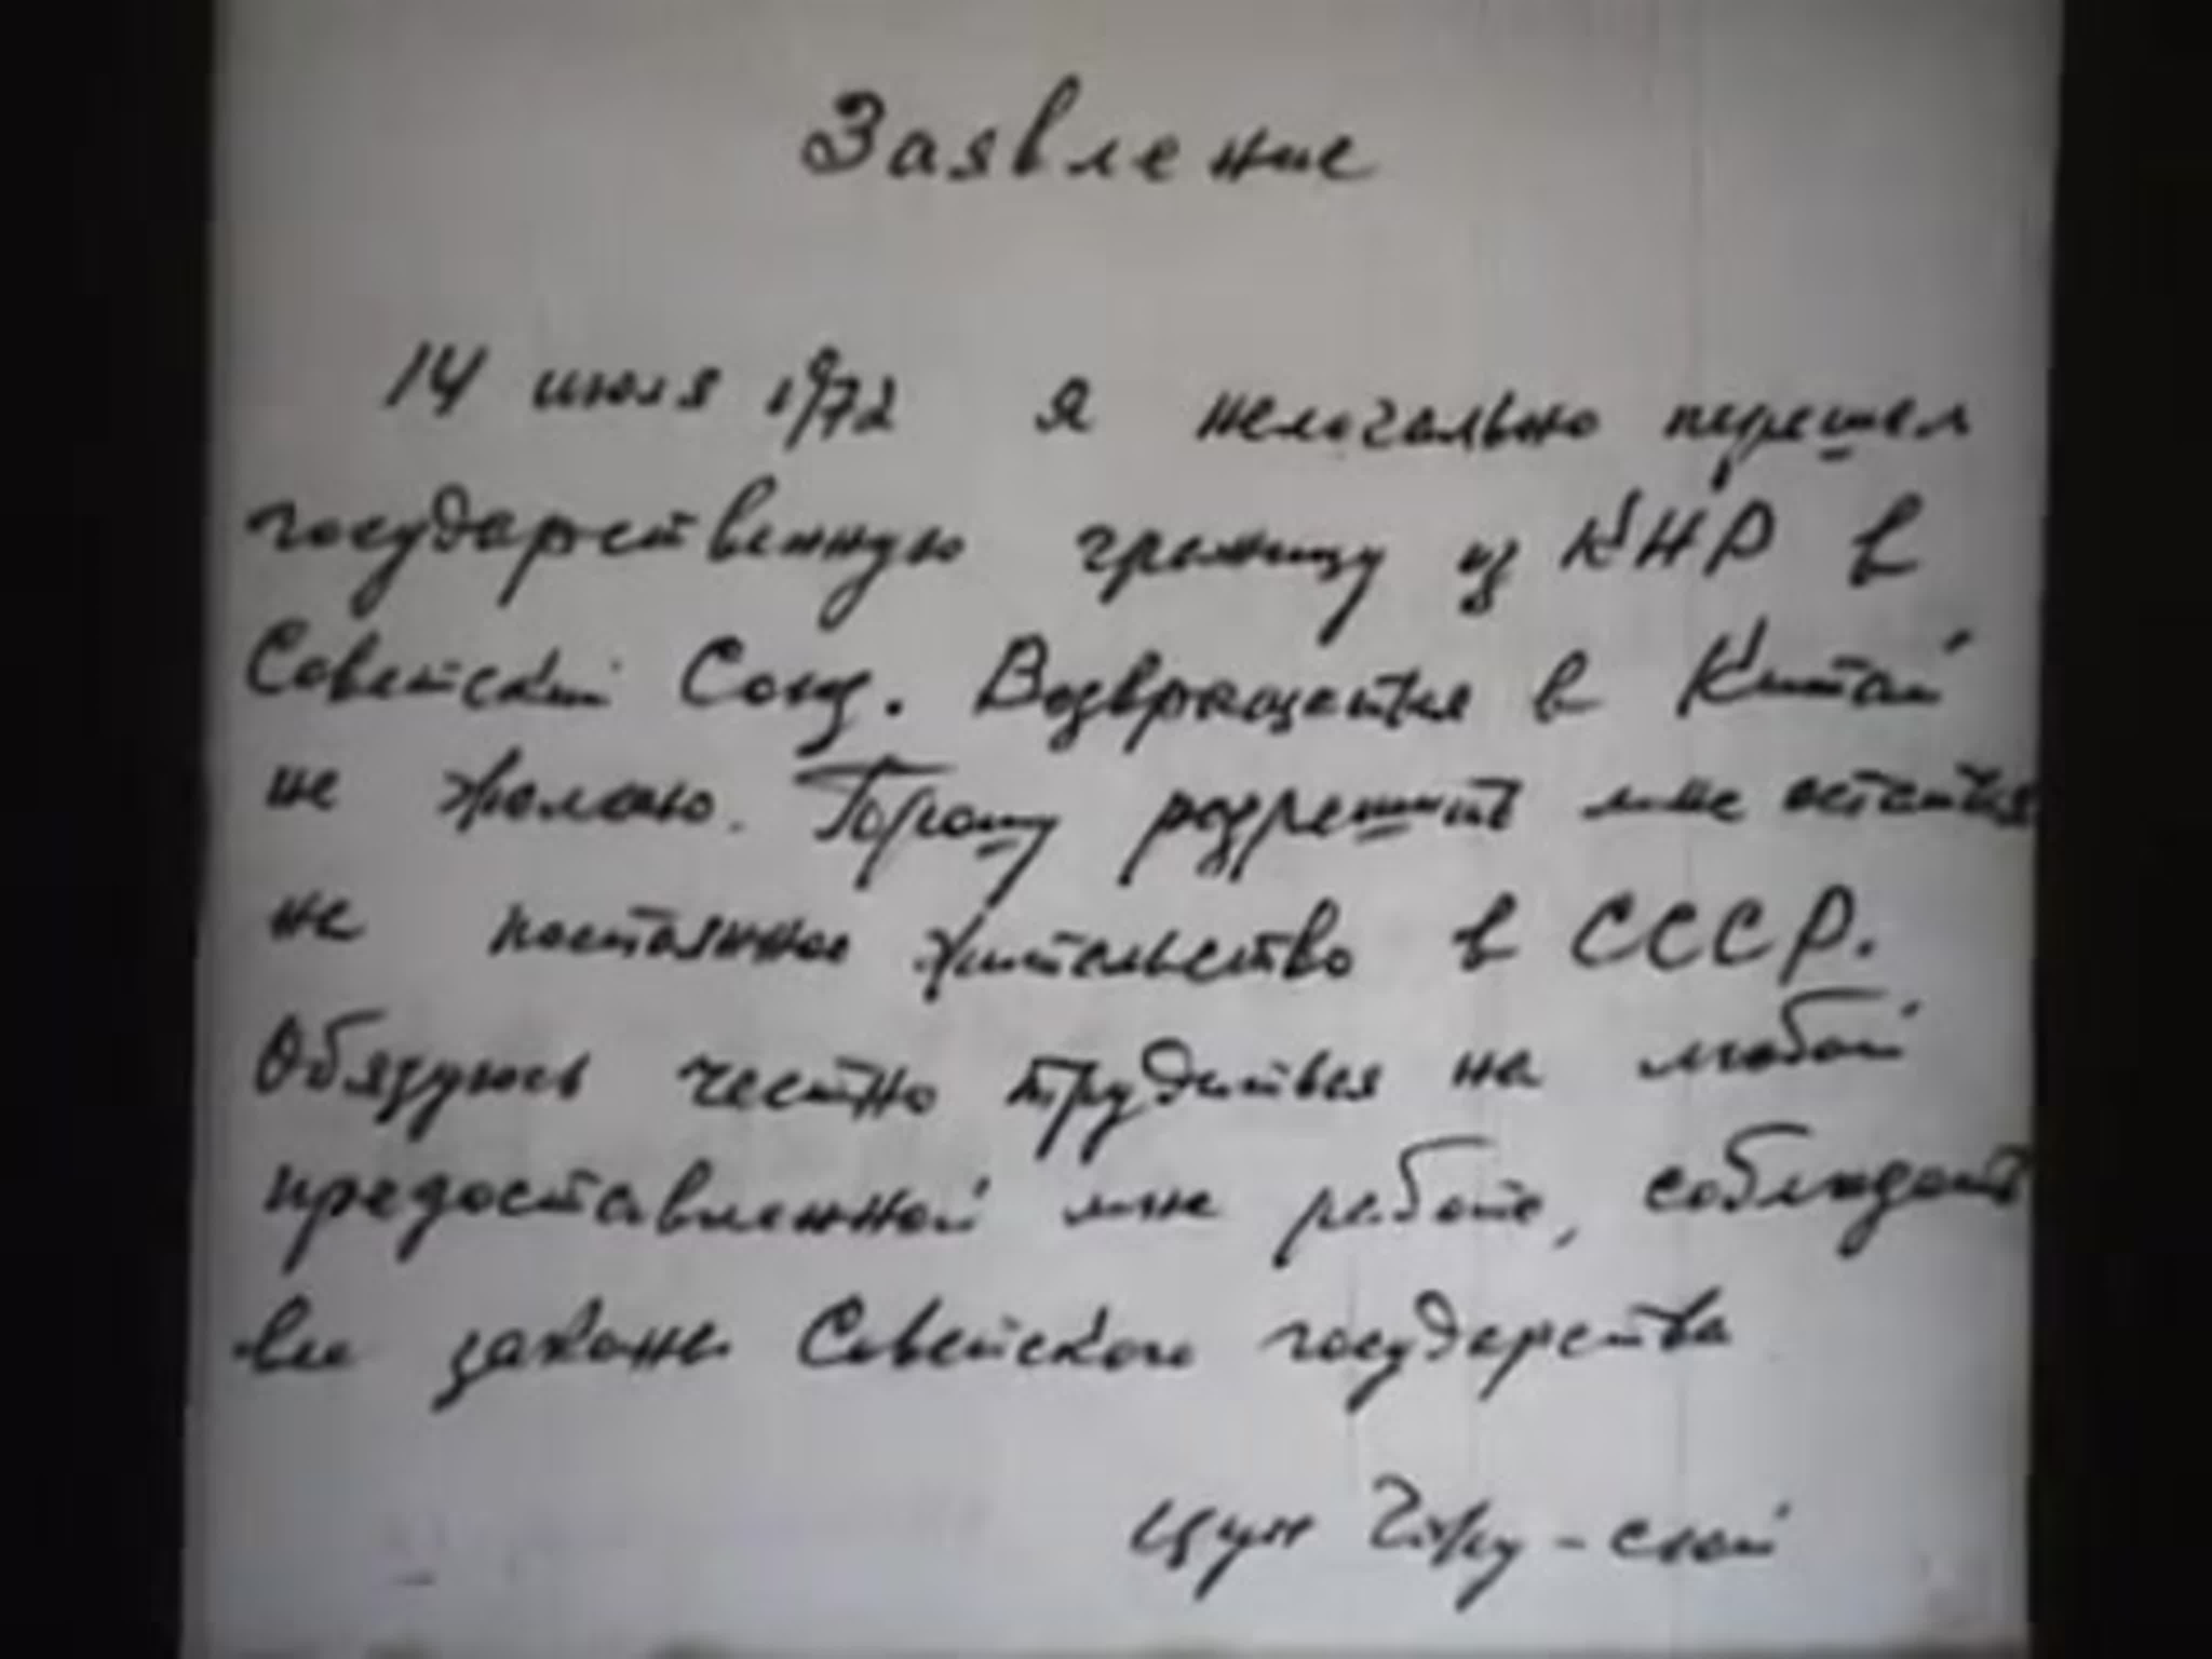 Заявление
14 июля 1972 я нелегально перешел
государственную границу из КНР в
Советский Союз. Возвращаться в Китай
не желаю. Прошу разрешить мне остаться
на постоянное жительство в СССР.
Обязуюсь честно трудиться на любой
предоставленной мне работе, соблюдать
все законы Советского государства
Цун